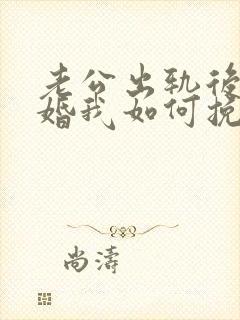 老公出轨後
婚我如何挽
尚濤